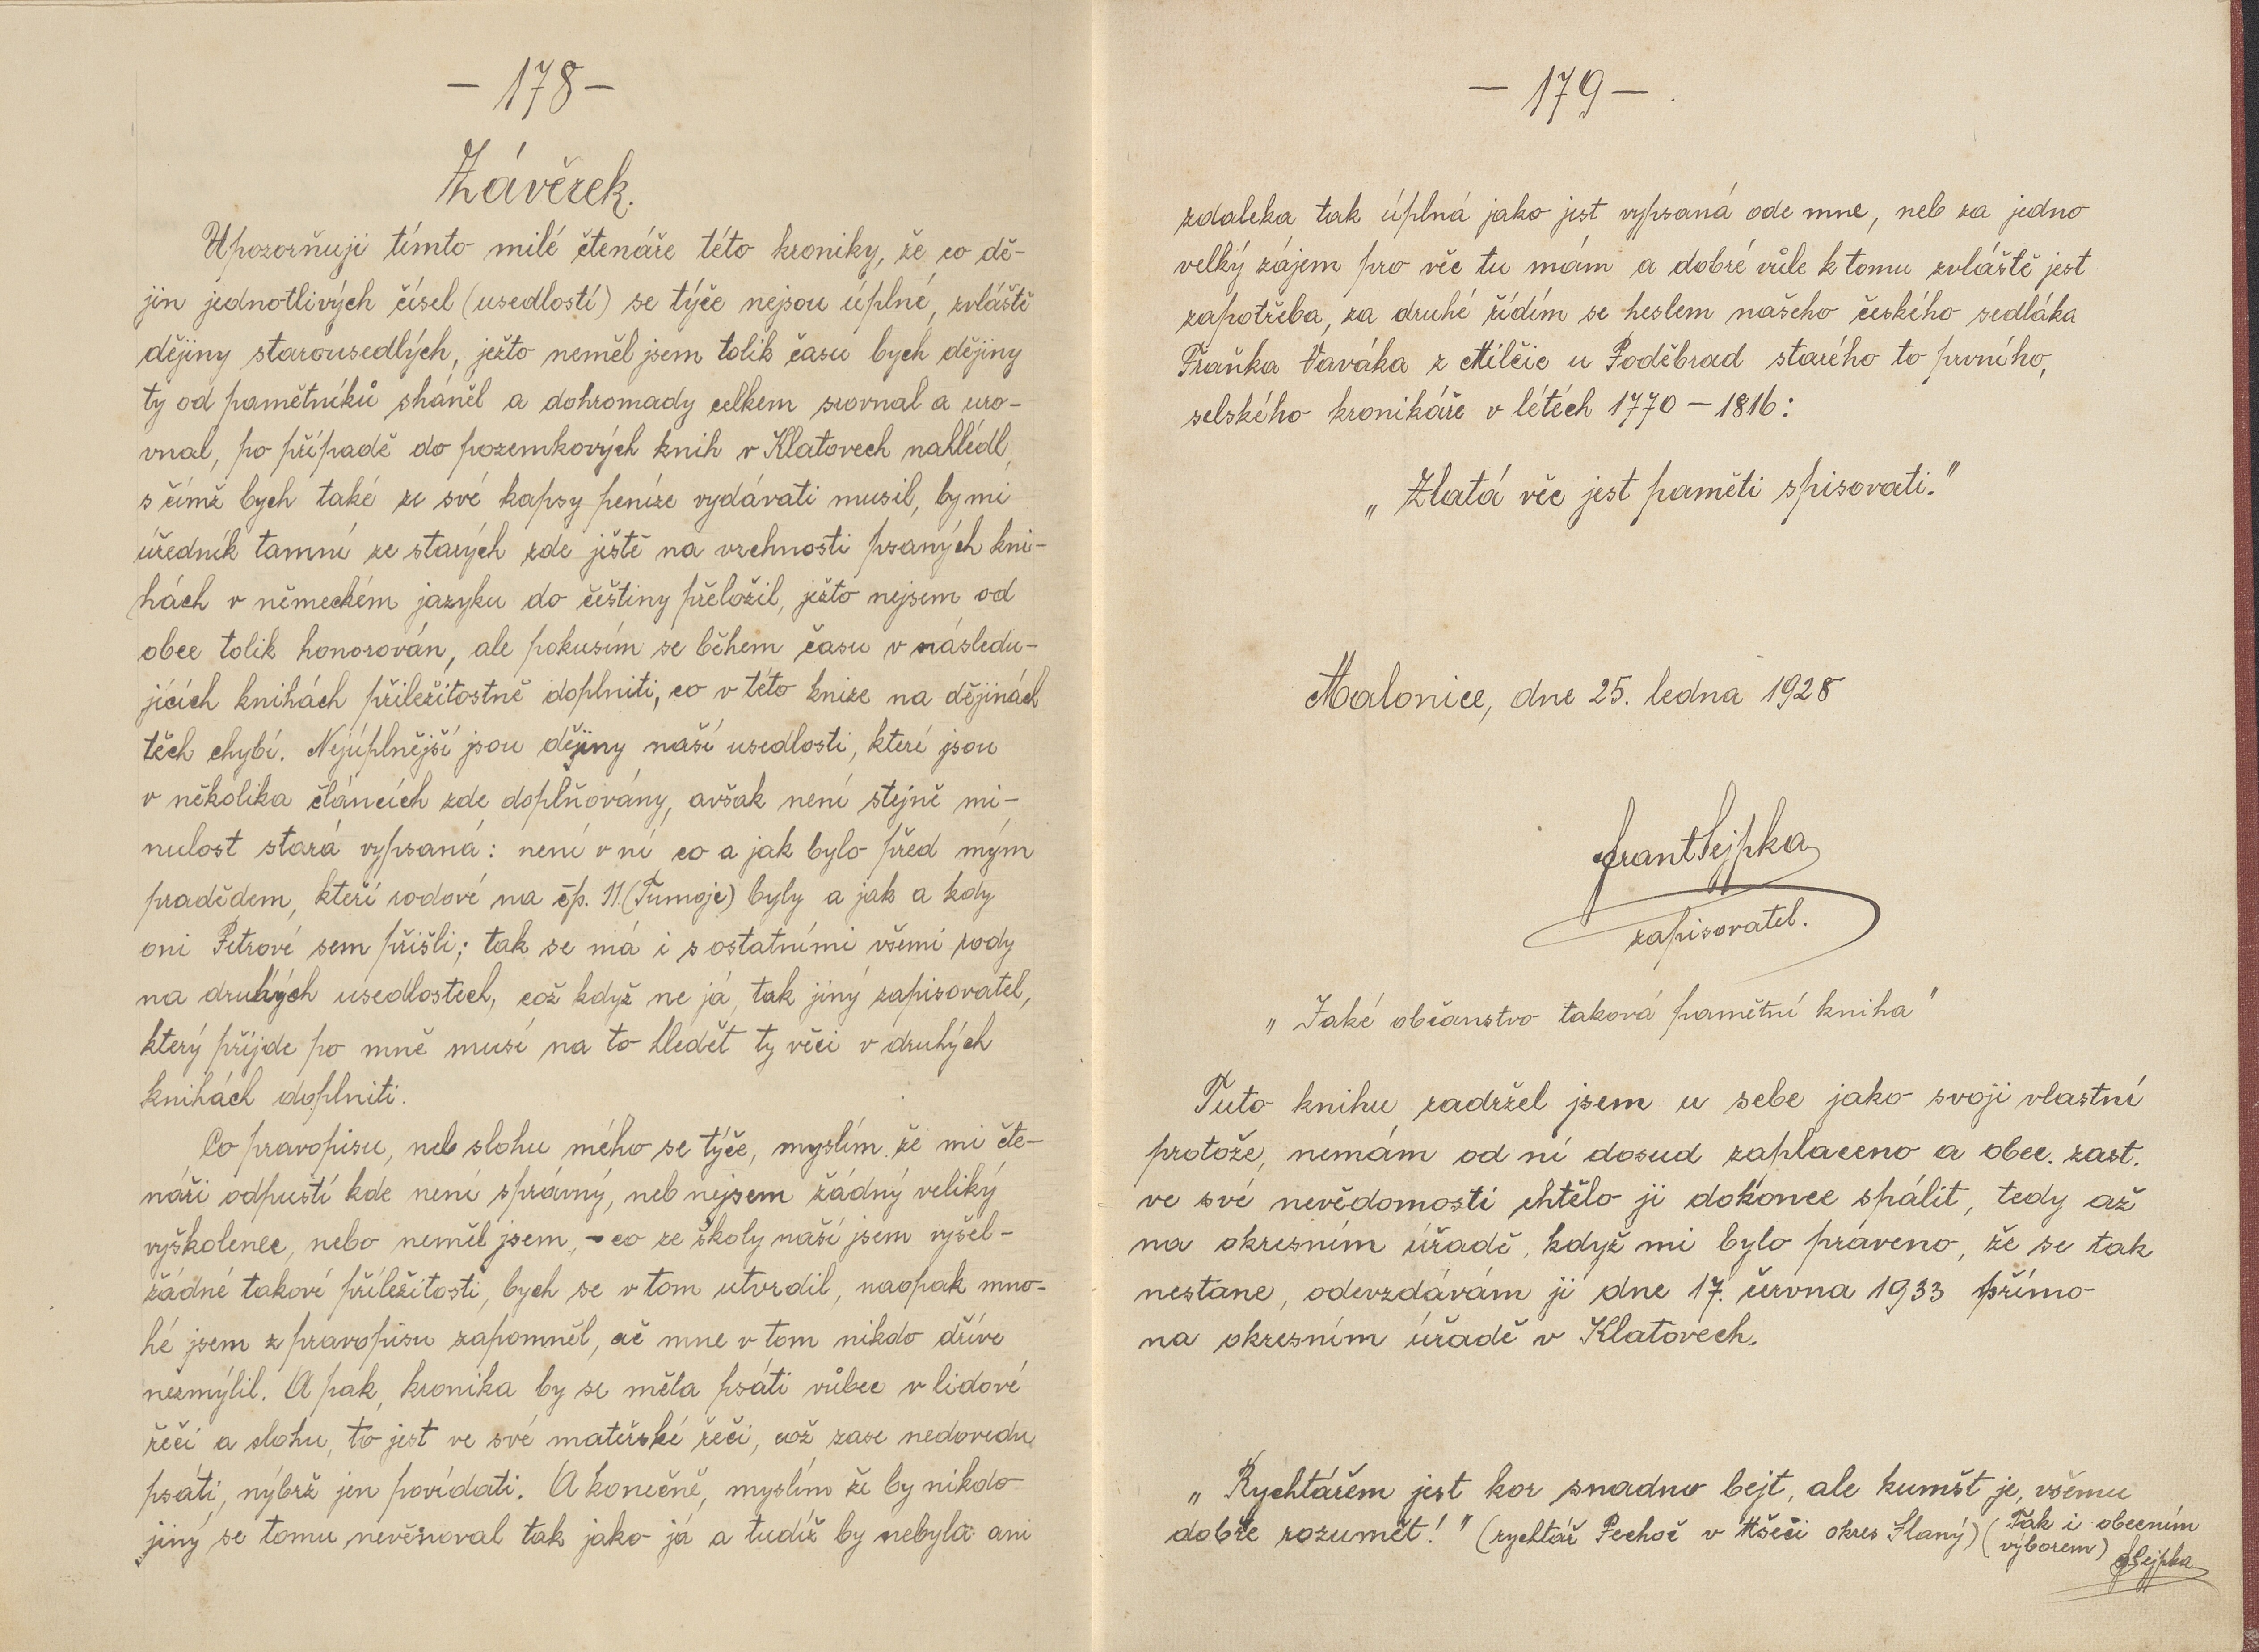 — 178 —
Závěrek.
Upozorňuji tímto milé čtenáře této kroniky, že co dě-
jin jednotlivých čísel (usedlostí) se týče nejsou úplné, zvláště
dějiny starousedlých, ježto neměl jsem tolik času bych dějiny
ty od pamětníků sháněl a dohromady celkem srovnal a uro-
vnal, po případě do pozemkových knih v Klatovech nahlédl,
s čímž bych také ze své kapsy peníze vydávati musil, by mi
úředník tamní ze starých zde ještě na vrchnosti psaných kni-
hách v německém jazyku do češtiny přeložil, ježto nejsem od
obce tolik honorován, ale pokusím se během času v následu-
jících knihách příležitostně doplniti, co v této knize na dějinách
těch chybí. Nejúplnější jsou dějiny naší usedlosti, které jsou
v několika článcích zde doplňovány, avšak není stejně mi-
nulost stará vypsaná: není v ní co a jak bylo před mým
pradědem, kteří rodové na čp. 11 (Tumoje) byly a jak a kdy
oni Petrové sem přišli; tak se má i s ostatními všemi rody
na druhých usedlostech, což když ne já, tak jiný zapisovatel,
který přijde po mně musí na to hledět ty věci v druhých
knihách doplniti.
Co pravopisu, neb slohu mého se týče, myslím že mi čte-
náři odpustí kde není správný, neb nejsem žádný veliký
vyškolenec, nebo neměl jsem, - co ze školy naší jsem vyšel -
žádné takové příležitosti, bych se v tom utvrdil, naopak mno-
hé jsem z pravopisu zapomněl, ač mne v tom nikdo dříve
nezmýlil. A pak, kronika by se měla psáti vůbec v lidové
řeči a slohu, to jest ve své mateřské řeči, což zase nedovedu
psáti, nýbrž jen povídati. A konečně, myslím že by nikdo
jiný se tomu nevěnoval tak jako já a tudíž by nebyla ani
— 179 —
zdaleka tak úplná jako jest vypsaná ode mne, neb za jedno
velký zájem pro věc tu mám a dobré vůle k tomu zvláště jest
zapotřeba, za druhé řídím se heslem našeho českého sedláka
Fraňka Vaváka z Milčic u Poděbrad starého to prvního,
selského kronikáře v létéch 1770 — 1816:
„Zlatá věc jest paměti spisovati."
Malonice, dne 25. ledna 1928
Frant Sejpka
zapisovatel.
„Jaké občanstvo taková pamětní kniha"
Tuto knihu zadržel jsem u sebe jako svoji vlastní
protože, nemám od ní dosud zaplaceno a obec. zast.
ve své nevědomosti chtělo ji dokonce spálit, tedy až
na okresním úřadě, když mi bylo praveno, že se tak
nestane, odevzdávám ji dne 17. června 1933 přímo
na okresním úřadě v Klatovech.
„Rychtářem jest kor snadno bejt, ale kumšt je, všemu
dobře rozumět!" (rychtář Pechoč v Mšeči okres Slaný) (Tak i obecním
výborem) FSejpka